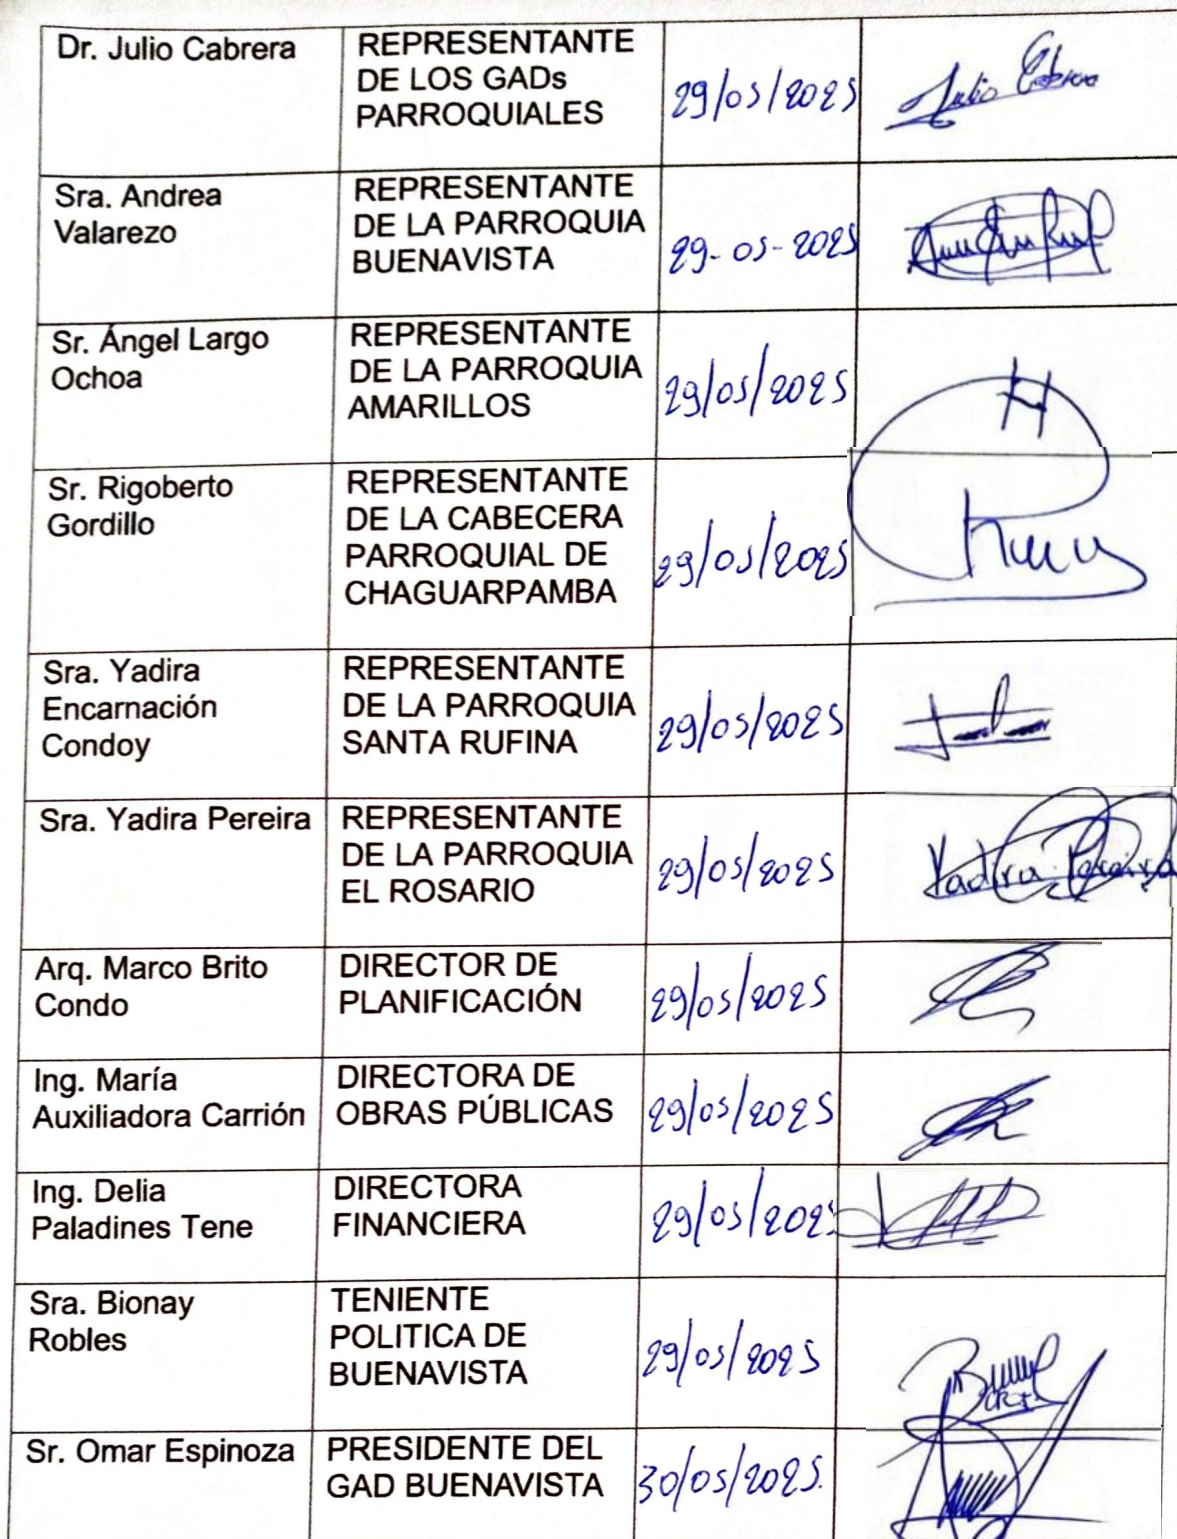 Dr. Julio Cabrera
REPRESENTANTE
DE LOS GADs
PARROQUIALES
29/05/2025
Julio Cabrera
Sra. Andrea
Valarezo
REPRESENTANTE
DE LA PARROQUIA
BUENAVISTA
29-05-2025
Sr. Ángel Largo
Ochoa
REPRESENTANTE
DE LA PARROQUIA
AMARILLOS
29/05/2025
Sr. Rigoberto
Gordillo
REPRESENTANTE
DE LA CABECERA
PARROQUIAL DE
CHAGUARPAMBA
29/05/2025
Sra. Yadira
Encarnación
Condoy
REPRESENTANTE
DE LA PARROQUIA
SANTA RUFINA
29/05/2025
Sra. Yadira Pereira
REPRESENTANTE
DE LA PARROQUIA
EL ROSARIO
29/05/2025
Yadira Pereira
Arq. Marco Brito
Condo
DIRECTOR DE
PLANIFICACIÓN
29/05/2025
Ing. María
Auxiliadora Carrión
DIRECTORA DE
OBRAS PÚBLICAS
29/05/2025
Ing. Delia
Paladines Tene
DIRECTORA
FINANCIERA
29/05/2025
Sra. Bionay
Robles
TENIENTE
POLITICA DE
BUENAVISTA
29/05/2025
Sr. Omar Espinoza
PRESIDENTE DEL
GAD BUENAVISTA
30/05/2025.